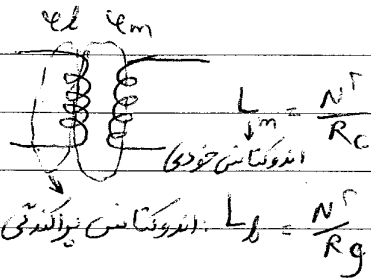 φl φm
Lm = N²/Rc
اندوکتانس خودی
اندوکتانس پراکندگی: Ll = N²/Rg